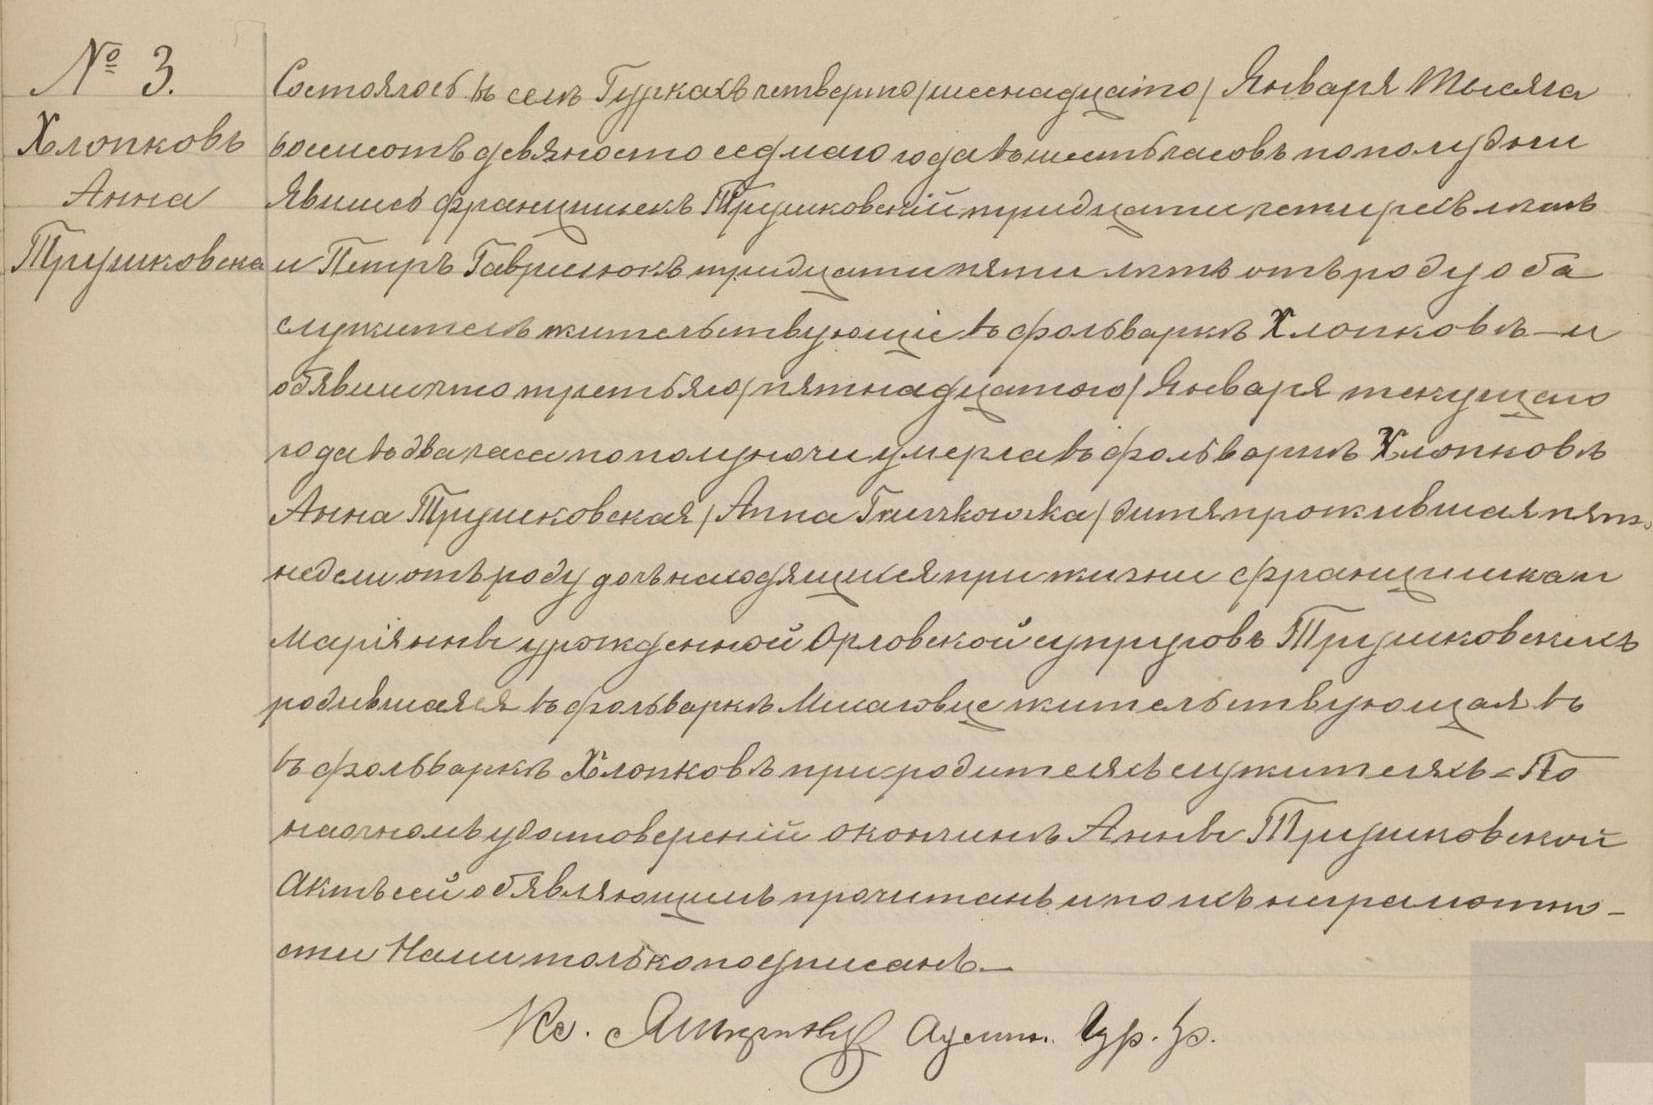 № 3.
Хлопковъ
Анна
Трушковска
Состоялось въ селѣ Гуркахъ четвертаго /шеснадцатаго/ Января Тысяча
восемсотъ девяносто седмаго года въ шесть часовъ пополудни
Явились Францишекъ Трушковскій тридцати четирехъ лѣтъ
и Петръ Гаврилюкъ тридцати пяти лѣтъ отъ роду оба
служителѣ жительствующіе въ фольваркѣ Хлопковѣ — и
обявили что третьяго /пятнадцатого/ Января текущаго
года въ два часа пополуночи умерла въ фольваркѣ Хлопковѣ
Анна Трушковская /Anna Truszkowska/ дитя прожившая пять
недели отъ роду дочь находящихся при жизни Францишка и
Маріянны урожденной Орловской супруговъ Трушковскихъ
родившаяся въ фольваркѣ жительствующая въ
въ фольваркѣ Хлопковѣ при родителяхъ служителяхъ — По
наочномъ удостовереній окончинѣ Анны Трушковской
Актъ сей обявляющимъ прочитанъ и по ихъ неграмотно-
сти Нами только подписанъ. —
Кс. Админ. Гур. пр.